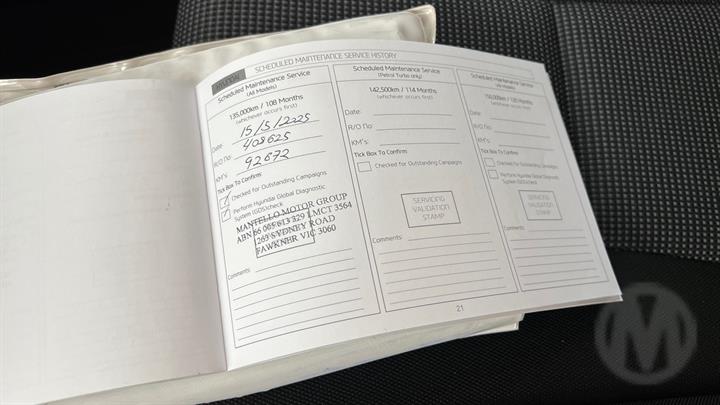 HYUNDAI SCHEDULED MAINTENANCE SERVICE HISTORY
Scheduled Maintenance Service
(All Models)
135,000km / 108 Months
(whichever occurs first)
Date: 15/5/2025
R/O no: 408625
KM's: 92672
Tick Box To Confirm:
Checked for Outstanding Campaigns
Perform Hyundai Global Diagnostic
System (GDS)check
MANTELLO MOTOR GROUP
ABN 66 005 613 329 LMCT 3564
1269 SYDNEY ROAD
FAWKNER VIC 3060
Comments:
Scheduled Maintenance Service
(Petrol Turbo only)
142,500km / 114 Months
(whichever occurs first)
Date:
R/O no:
KM's:
Tick Box To Confirm:
Checked for Outstanding Campaigns
SERVICING
VALIDATION
STAMP
Comments:
Scheduled Maintenance Service
(All Models)
150,000km / 120 Months
(whichever occurs first)
Date:
R/O no:
KM's:
Tick Box To Confirm:
Checked for Outstanding Campaigns
Perform Hyundai Global Diagnostic
System (GDS)check
SERVICING
VALIDATION
STAMP
Comments:
21
M